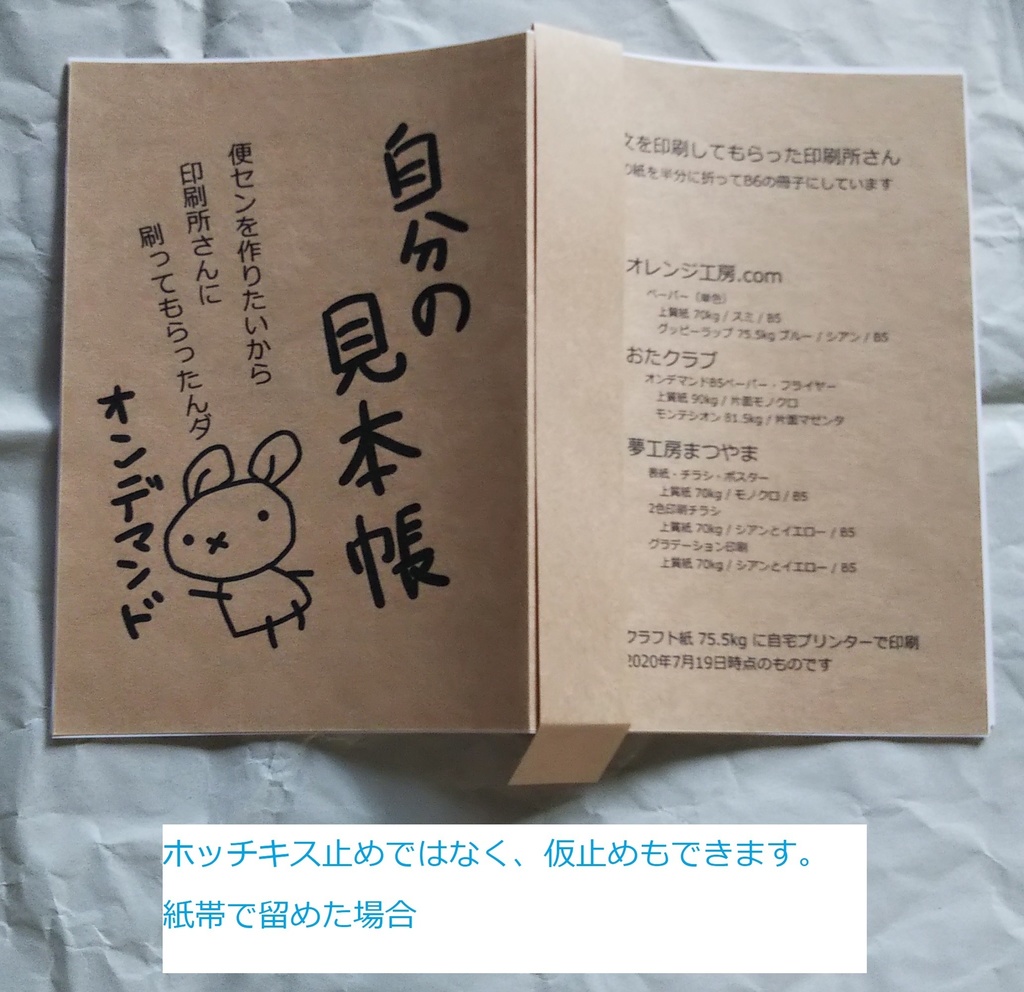 自分の
見本帳
便センを作りたいから
印刷所さんに
刷ってもらったんダ
オンデマンド
を印刷してもらった印刷所さん
紙を半分に折ってB6の冊子にしています
オレンジ工房.com
ペーパー（単色）
上質紙 70kg / スミ / B5
グッピーラップ 75.5kg ブルー / シアン / B5
おたクラブ
オンデマンドB5ペーパー・フライヤー
上質紙 90kg / 片面モノクロ
モンテシオン 81.5kg / 片面マゼンタ
夢工房まつやま
表紙・チラシ・ポスター
上質紙 70kg / モノクロ / B5
2色印刷チラシ
上質紙 70kg / シアンとイエロー / B5
グラデーション印刷
上質紙 70kg / シアンとイエロー / B5
クラフト紙 75.5kg に自宅プリンターで印刷
2020年7月19日時点のものです
ホッチキス止めではなく、仮止めもできます。
紙帯で留めた場合